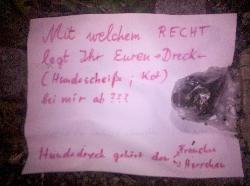 Mit welchem RECHT
legt Ihr Euren - Dreck -
(Hundescheiße ; Kot)
bei mir ab ???
Hundedreck gehört den
Herrchen